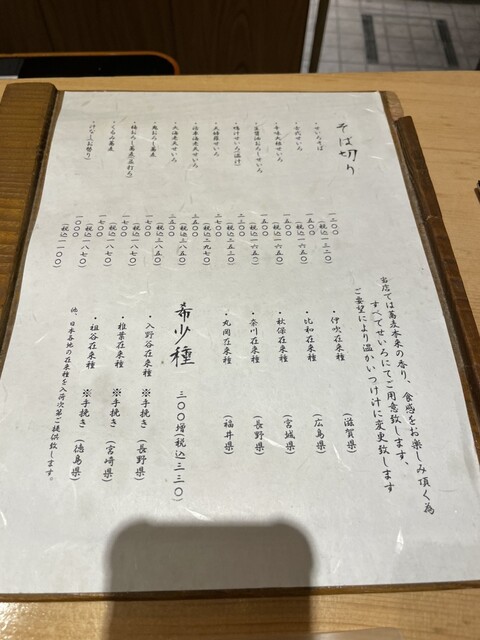 そば切り
・せいろそば 一二〇〇
(税込一三二〇)
・古代せいろ 一五〇〇
(税込一六五〇)
・辛味大根せいろ 一五〇〇
(税込一六五〇)
・生醤油おろしせいろ 一五〇〇
(税込一六五〇)
・鴨汁せいろ(温汁) 二三〇〇
(税込二五三〇)
・天婦羅せいろ 二七〇〇
(税込二九七〇)
・活車海老天せいろ 三五〇〇
(税込三八五〇)
・大海老天せいろ 三五〇〇
(税込三八五〇)
・鬼おろし蕎麦 一七〇〇
(税込一八七〇)
・梅おろし蕎麦 一七〇〇
(税込一八七〇)
・くるみ蕎麦 一七〇〇
(税込一八七〇)
・汁なし(お替り) 一〇〇〇
(税込一一〇〇)
当店では蕎麦本来の香り、食感をお楽しみ頂く為
すべてせいろにてご用意致します、
ご要望により温かいつけ汁に変更致します
・伊吹在来種 (滋賀県)
・比和在来種 (広島県)
・秋保在来種 (宮城県)
・奈川在来種 (長野県)
・丸岡在来種 (福井県)
希少種 三〇〇増(税込三三〇)
・入野谷在来種 ※手挽き (長野県)
・椎葉在来種 ※手挽き (宮崎県)
・祖谷在来種 ※手挽き (徳島県)
他、日本各地の在来種を入荷次第ご提供致します。